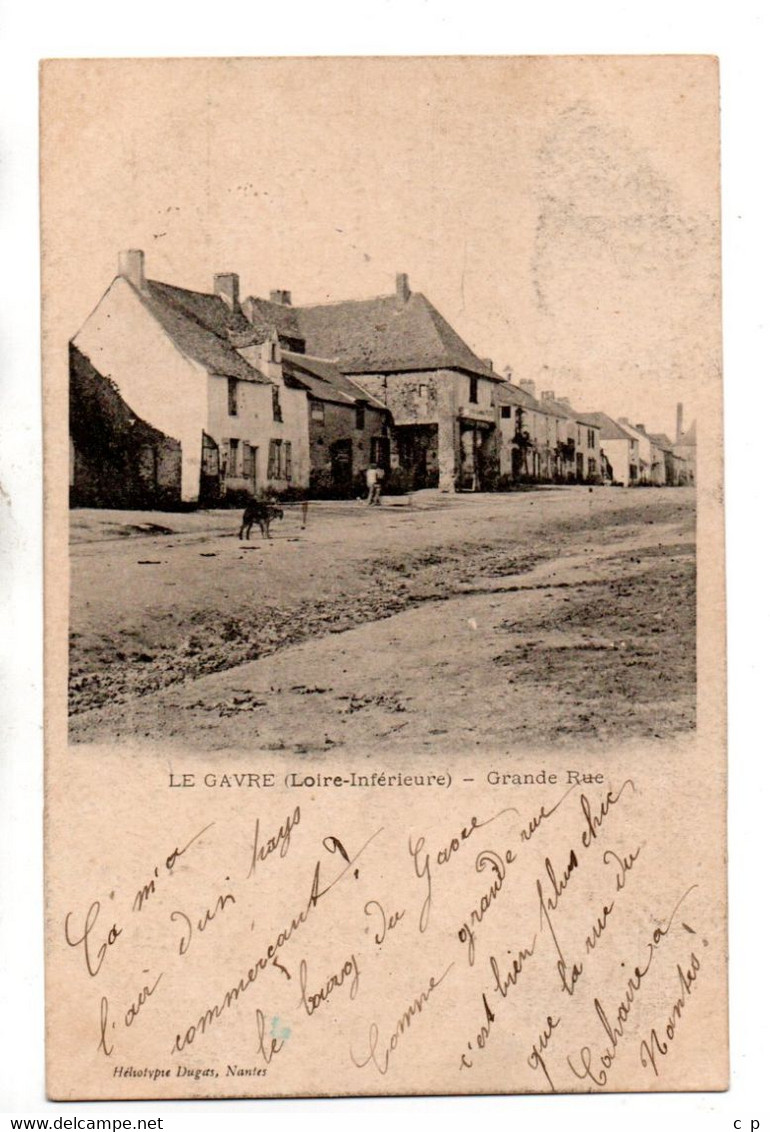 LE GAVRE (Loire-Inférieure) – Grande Rue
Ça m'a
l'air d'un pays
commerçant?
le bourg du Gavre
Comme grande rue
c'est bien plus chic
que la rue du
Calvaire à
Nantes!
Héliotypie Dugas, Nantes
c p